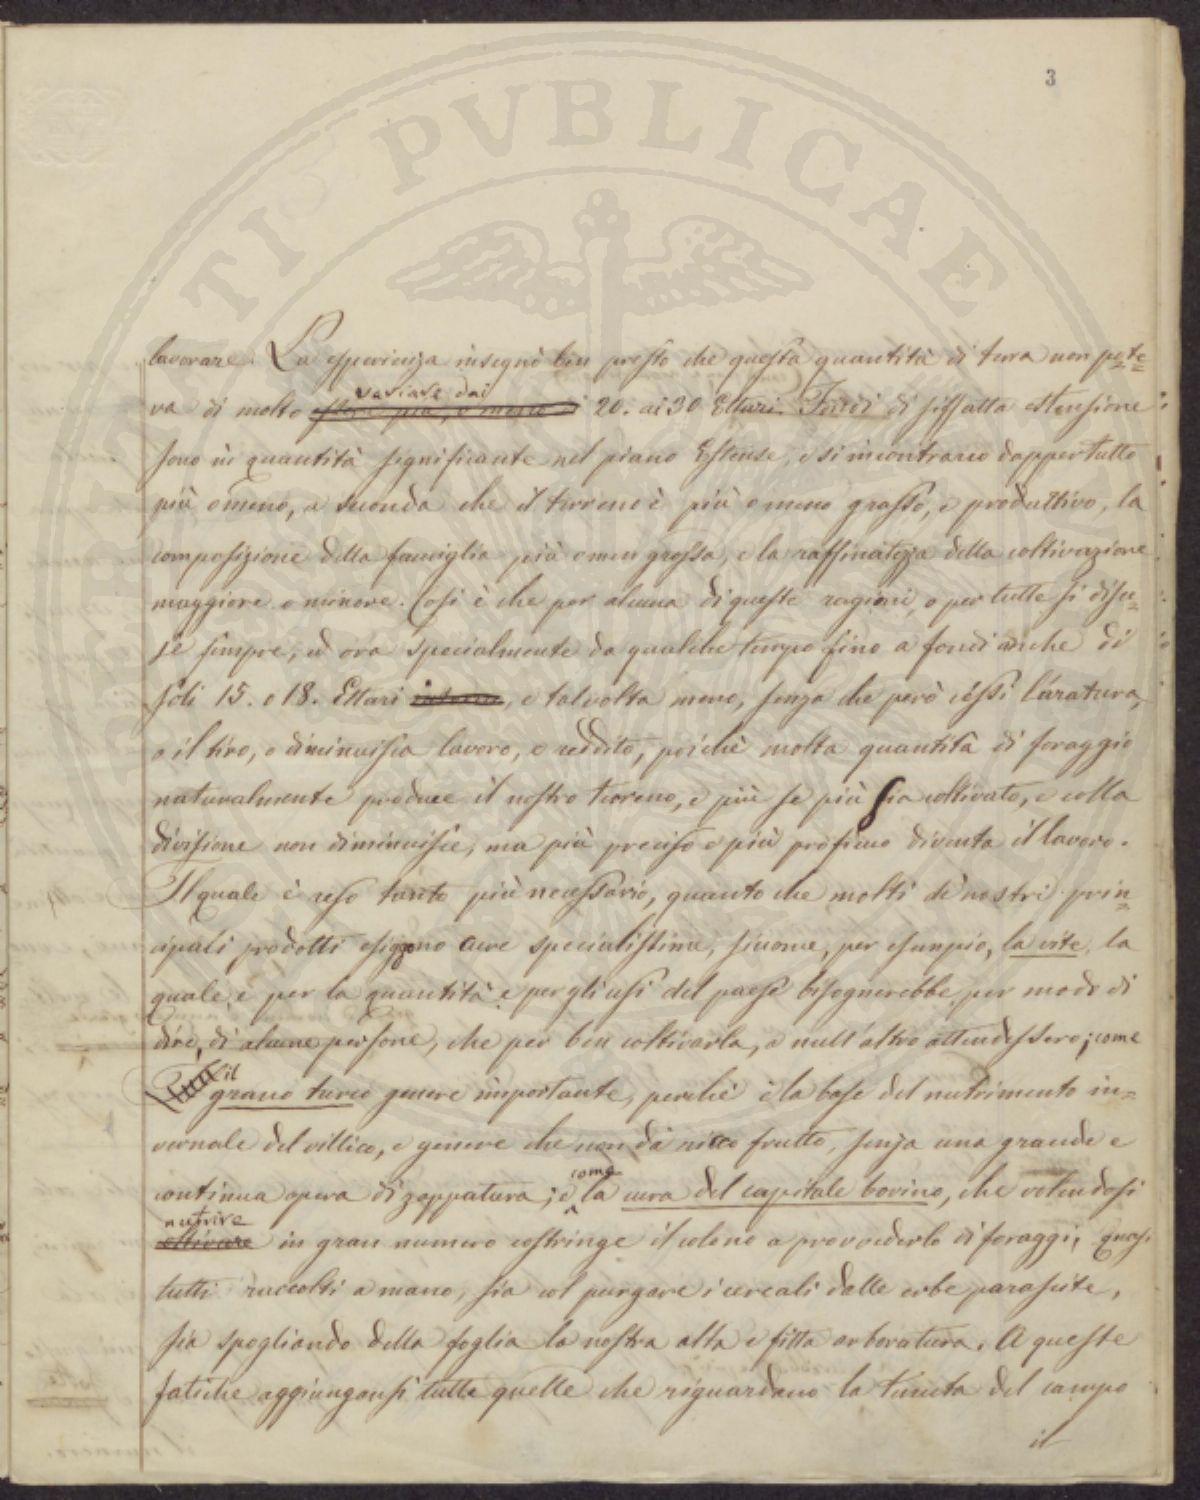 3
PVBLICAE
lavorare. La esperienza insegnò ben presto che questa quantità di terra non pote=
variare dai
va di molto 20. ai 30 Ettari. Fondi di siffatta estensione
sono in quantità significante nel piano Estense, e si incontrano dappertutto
più o meno, a seconda che il terreno è più o meno grasso, e produttivo, la
composizione della famiglia più o men grossa, e la raffinatezza della coltivazione
maggiore o minore. Così è che per alcuna di queste ragioni, o per tutte si disce=
se sempre, ed ora specialmente da qualche tempo fino a fondi anche di
soli 15. o 18. Ettari, e talvolta meno, senza che però cessi l'aratura,
o il tiro, o diminuisca lavoro, e reddito, poichè molta quantità di foraggio
naturalmente produce il nostro terreno, e più se più sia coltivato, e colla
divisione non diminuisce, ma più preciso e più prossimo diventa il lavoro.
Il quale è reso tanto più necessario, quanto che molti de' nostri prin=
cipali prodotti esigono cure specialissime, siccome, per esempio, la vite, la
quale, e per la quantità e per gli usi del paese bisognerebbe, per modo di
dire, di alcune persone, che per ben coltivarla, a null'altro attendessero; come
il
grano turco genere importante, perchè è la base del nutrimento in=
vernale del villico, e genere che non dà ricco frutto, senza una grande e
come
continua opera di zappatura; e la cura del capitale bovino, che volendosi
nutrire
estivare in gran numero costringe il colono a provvederlo di foraggi, quasi
tutti raccolti a mano, sia col purgare i cereali dalle erbe parassite,
sia spogliando della foglia la nostra alta e fitta arboratura. A queste
fatiche aggiungonsi tutte quelle che riguardano la tenuta del campo
il